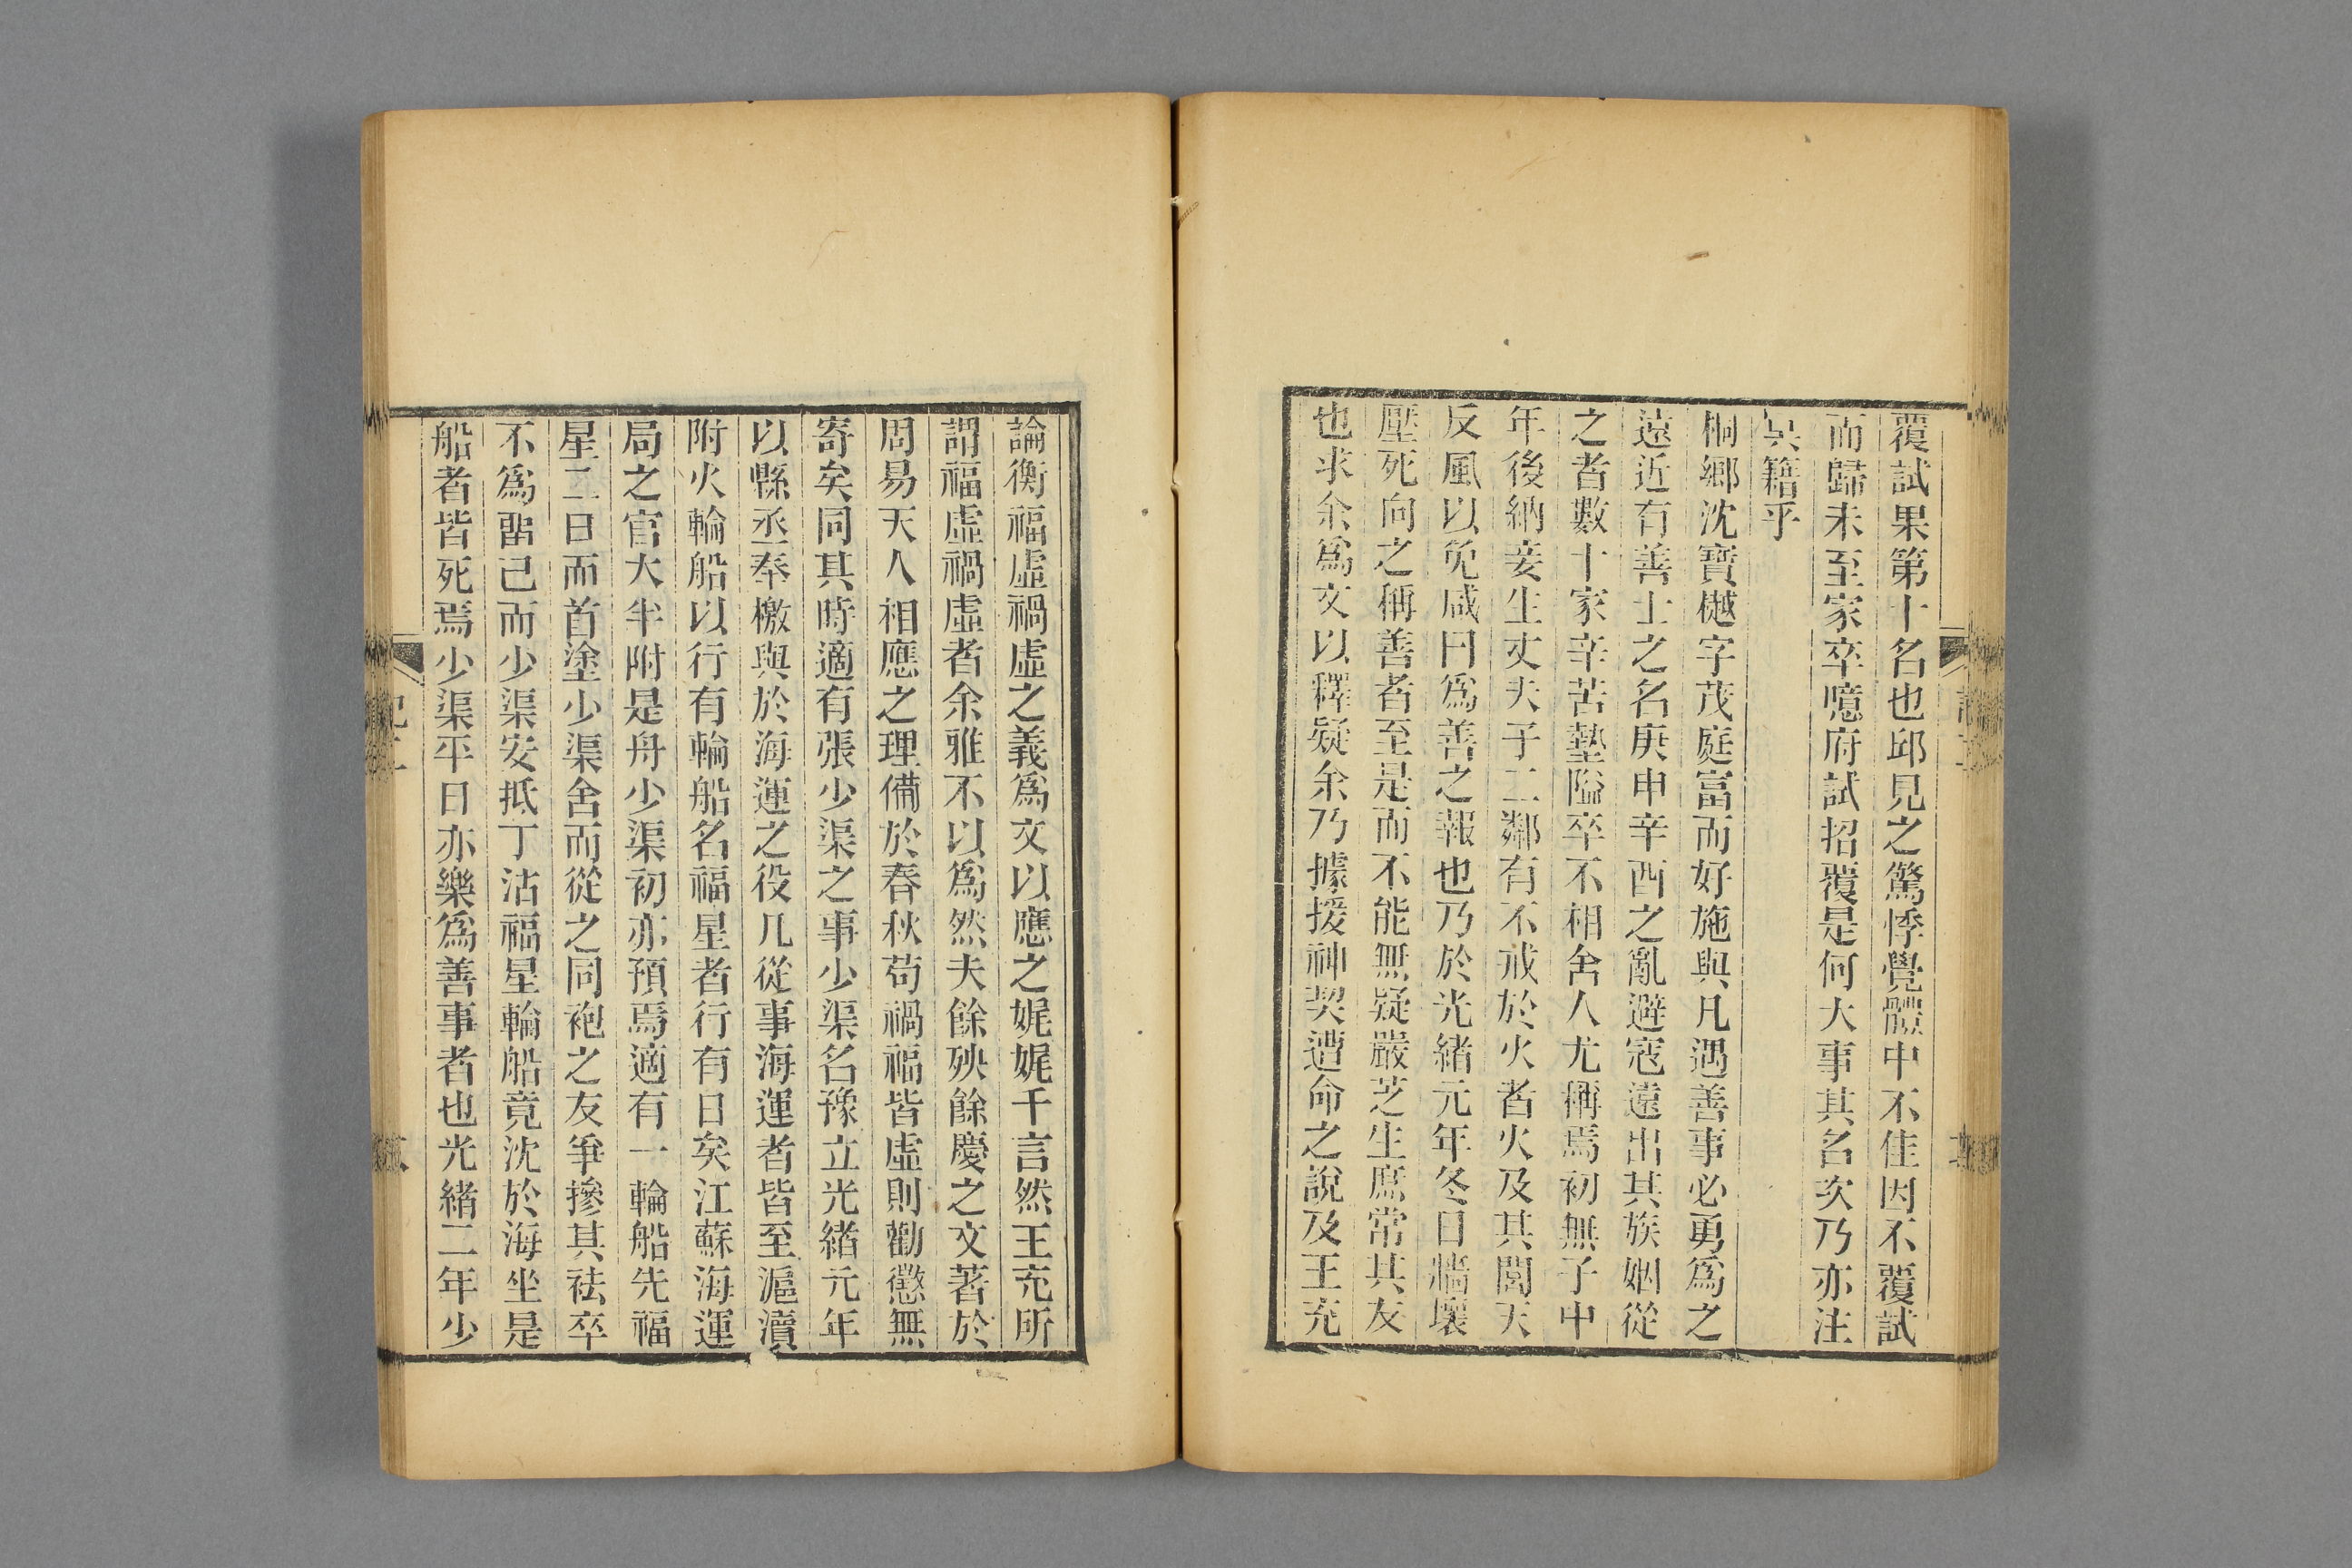 覆試果第十名也邱見之驚悸覺體中不佳因不覆試
而歸未至家卒噫府試招覆是何大事其名次乃亦注
冥籍乎
桐鄉沈寶樾字茂庭富而好施與凡遇善事必勇爲之
遠近有善士之名庚申辛酉之亂避寇遠出其族姻從
之者數十家辛苦墊隘卒不相舍人尤稱焉初無子中
年後納妾生丈夫子二鄰有不戒於火者火及其閭天
反風以免咸曰爲善之報也乃於光緒元年冬日牆壞
壓死向之稱善者至是而不能無疑嚴芝生庶常其友
也求余爲文以釋疑余乃據援神契遭命之說及王充
論衡福虛禍虛之義爲文以應之娓娓千言然王充所
謂福虛禍虛者余雅不以爲然夫餘殃餘慶之文著於
周易天人相應之理備於春秋苟禍福皆虛則勸懲無
寄矣同其時適有張少渠之事少渠名豫立光緒元年
以縣丞奉檄與於海運之役凡從事海運者皆至滬瀆
附火輪船以行有輪船名福星者行有日矣江蘇海運
局之官大半附是舟少渠初亦預焉適有一輪船先福
星二日而首塗少渠舍而從之同袍之友爭摻其袪卒
不爲畱已而少渠安抵丁沽福星輪船竟沈於海坐是
船者皆死焉少渠平日亦樂爲善事者也光緒二年少